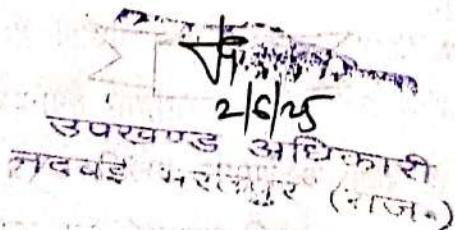 2/6/25
उपखण्ड अधिकारी
नदवई भरतपुर (राज॰)